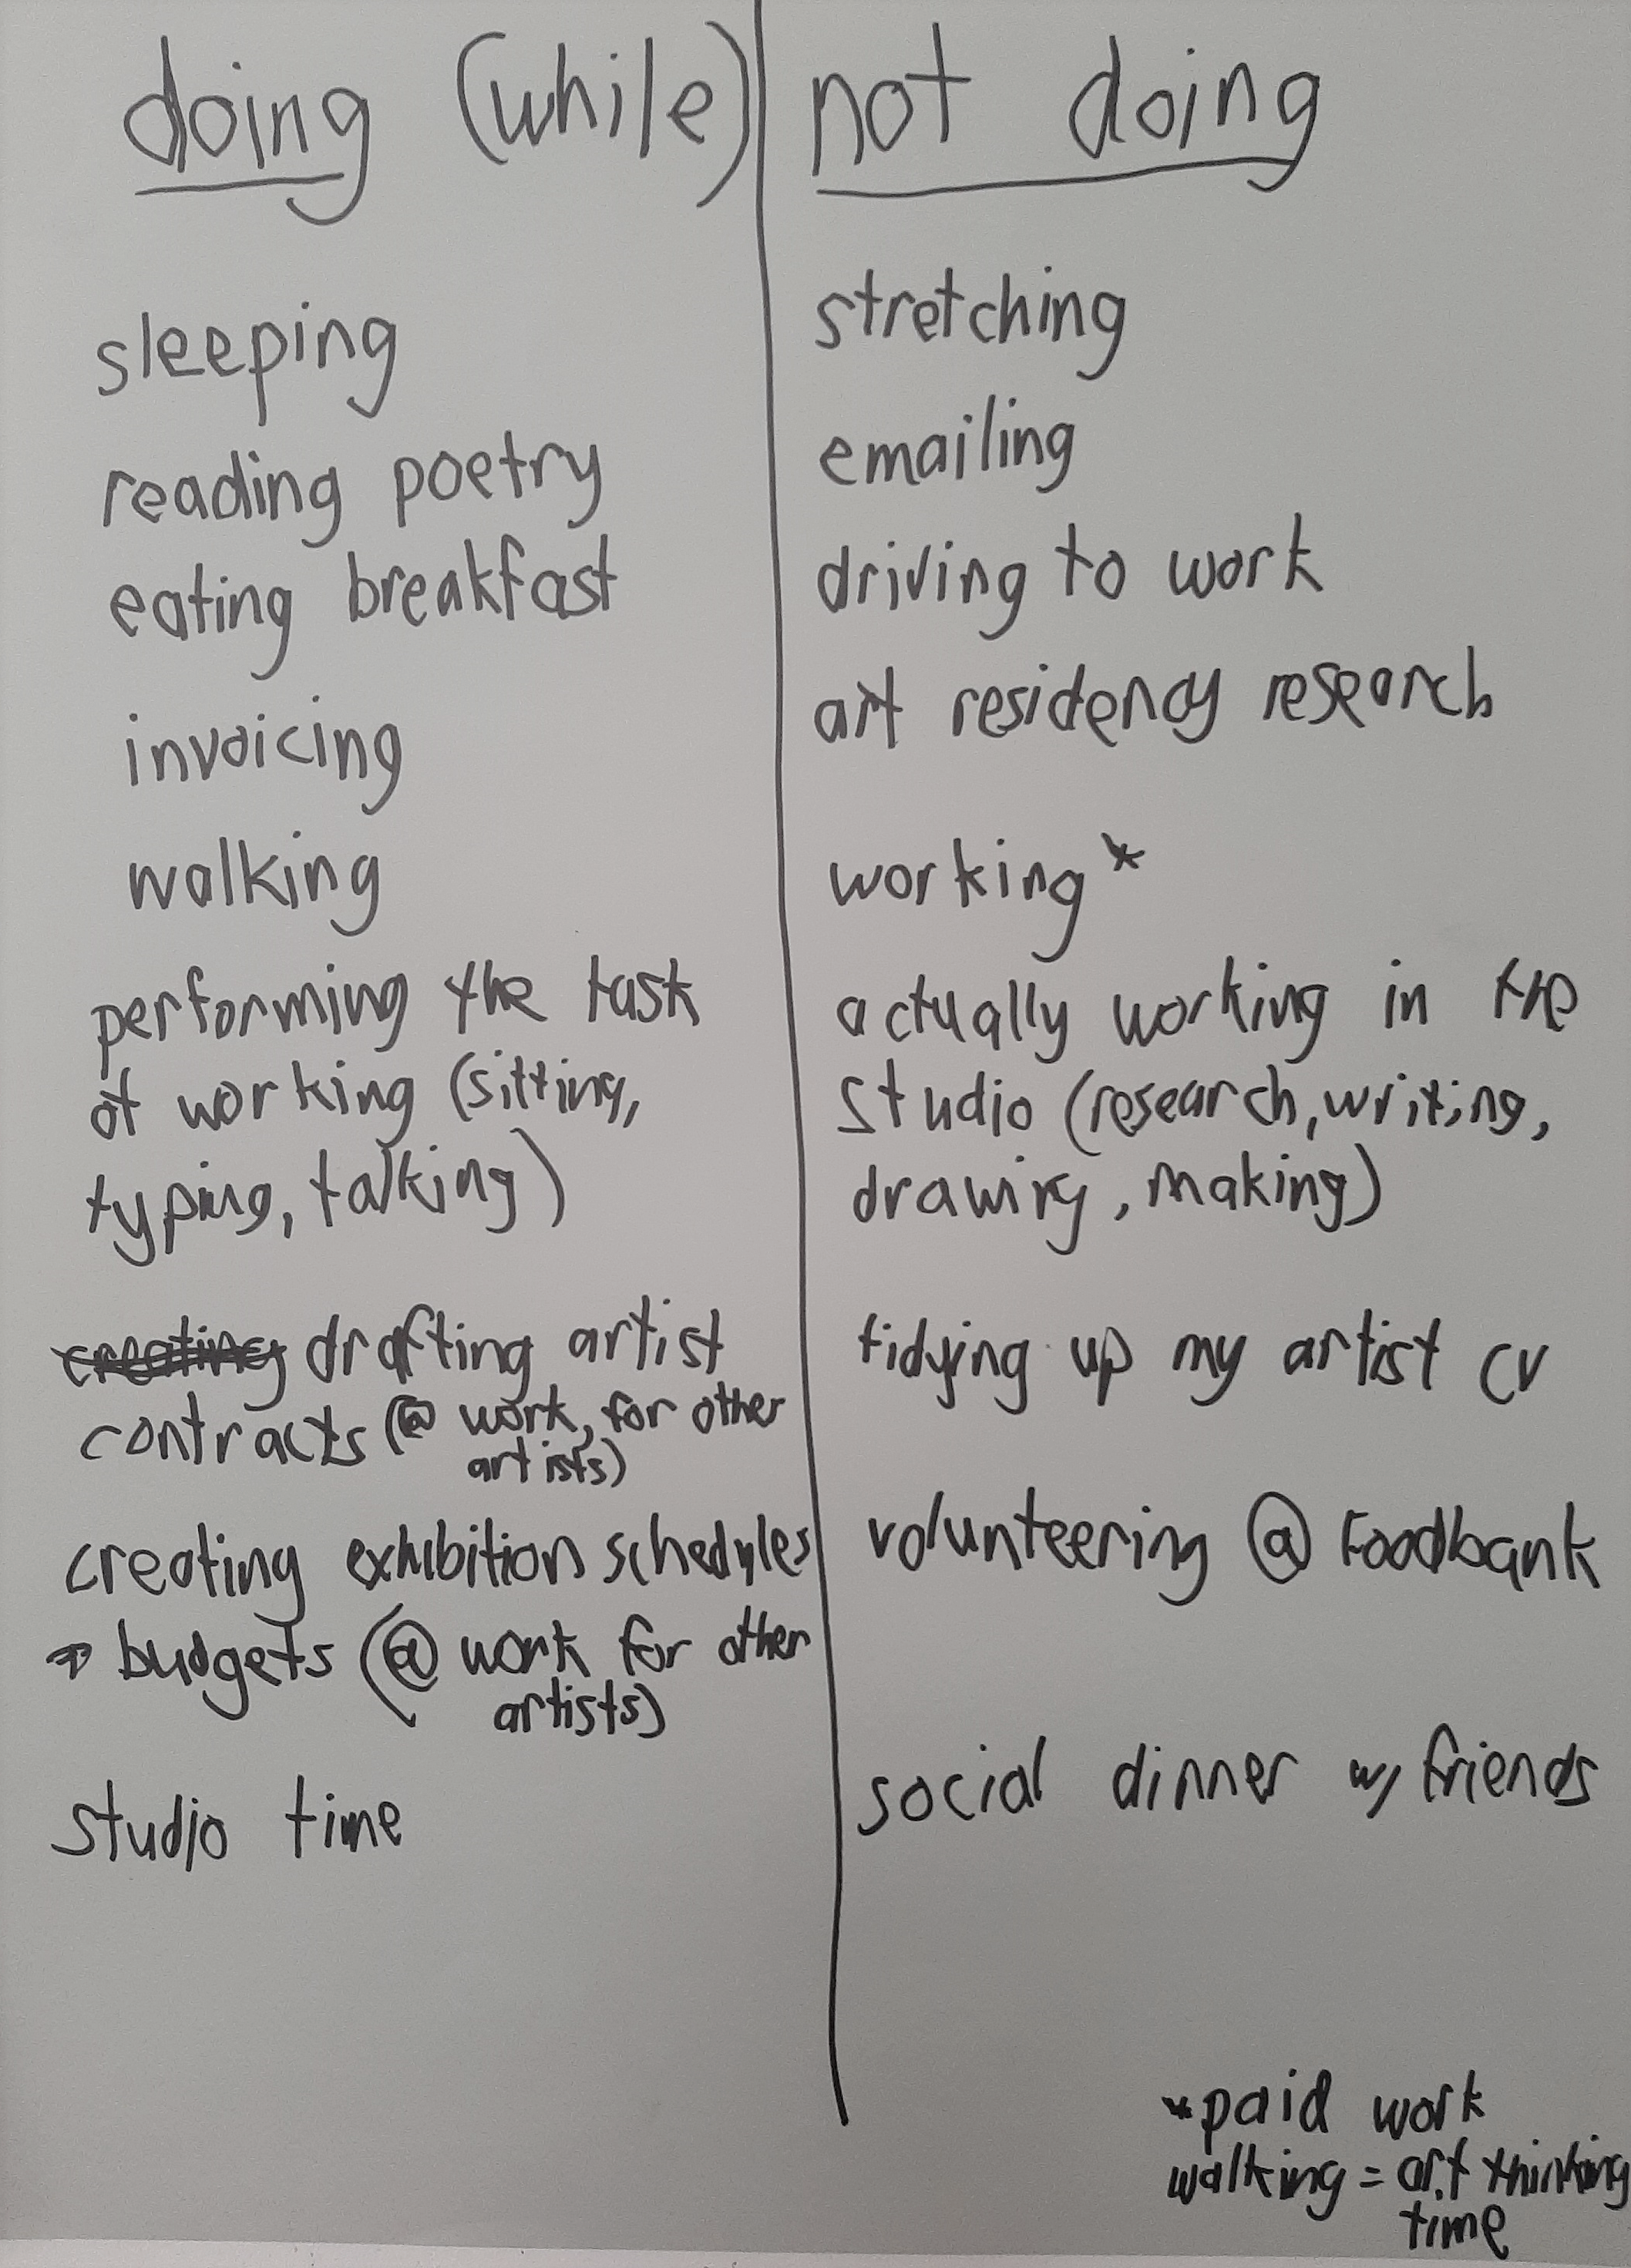 doing (while)
sleeping
reading poetry
eating breakfast
invoicing
walking
performing the task
of working (sitting,
typing, talking)
creating drafting artist
contracts (@ work, for other
artists)
creating exhibition schedules
+ budgets (@ work for other
artists)
studio time
not doing
stretching
emailing
driving to work
art residency research
working *
actually working in the
studio (research, writing,
drawing, making)
tidying up my artist cv
volunteering @ Foodbank
social dinner w/ friends
*paid work
walking = art thinking
time